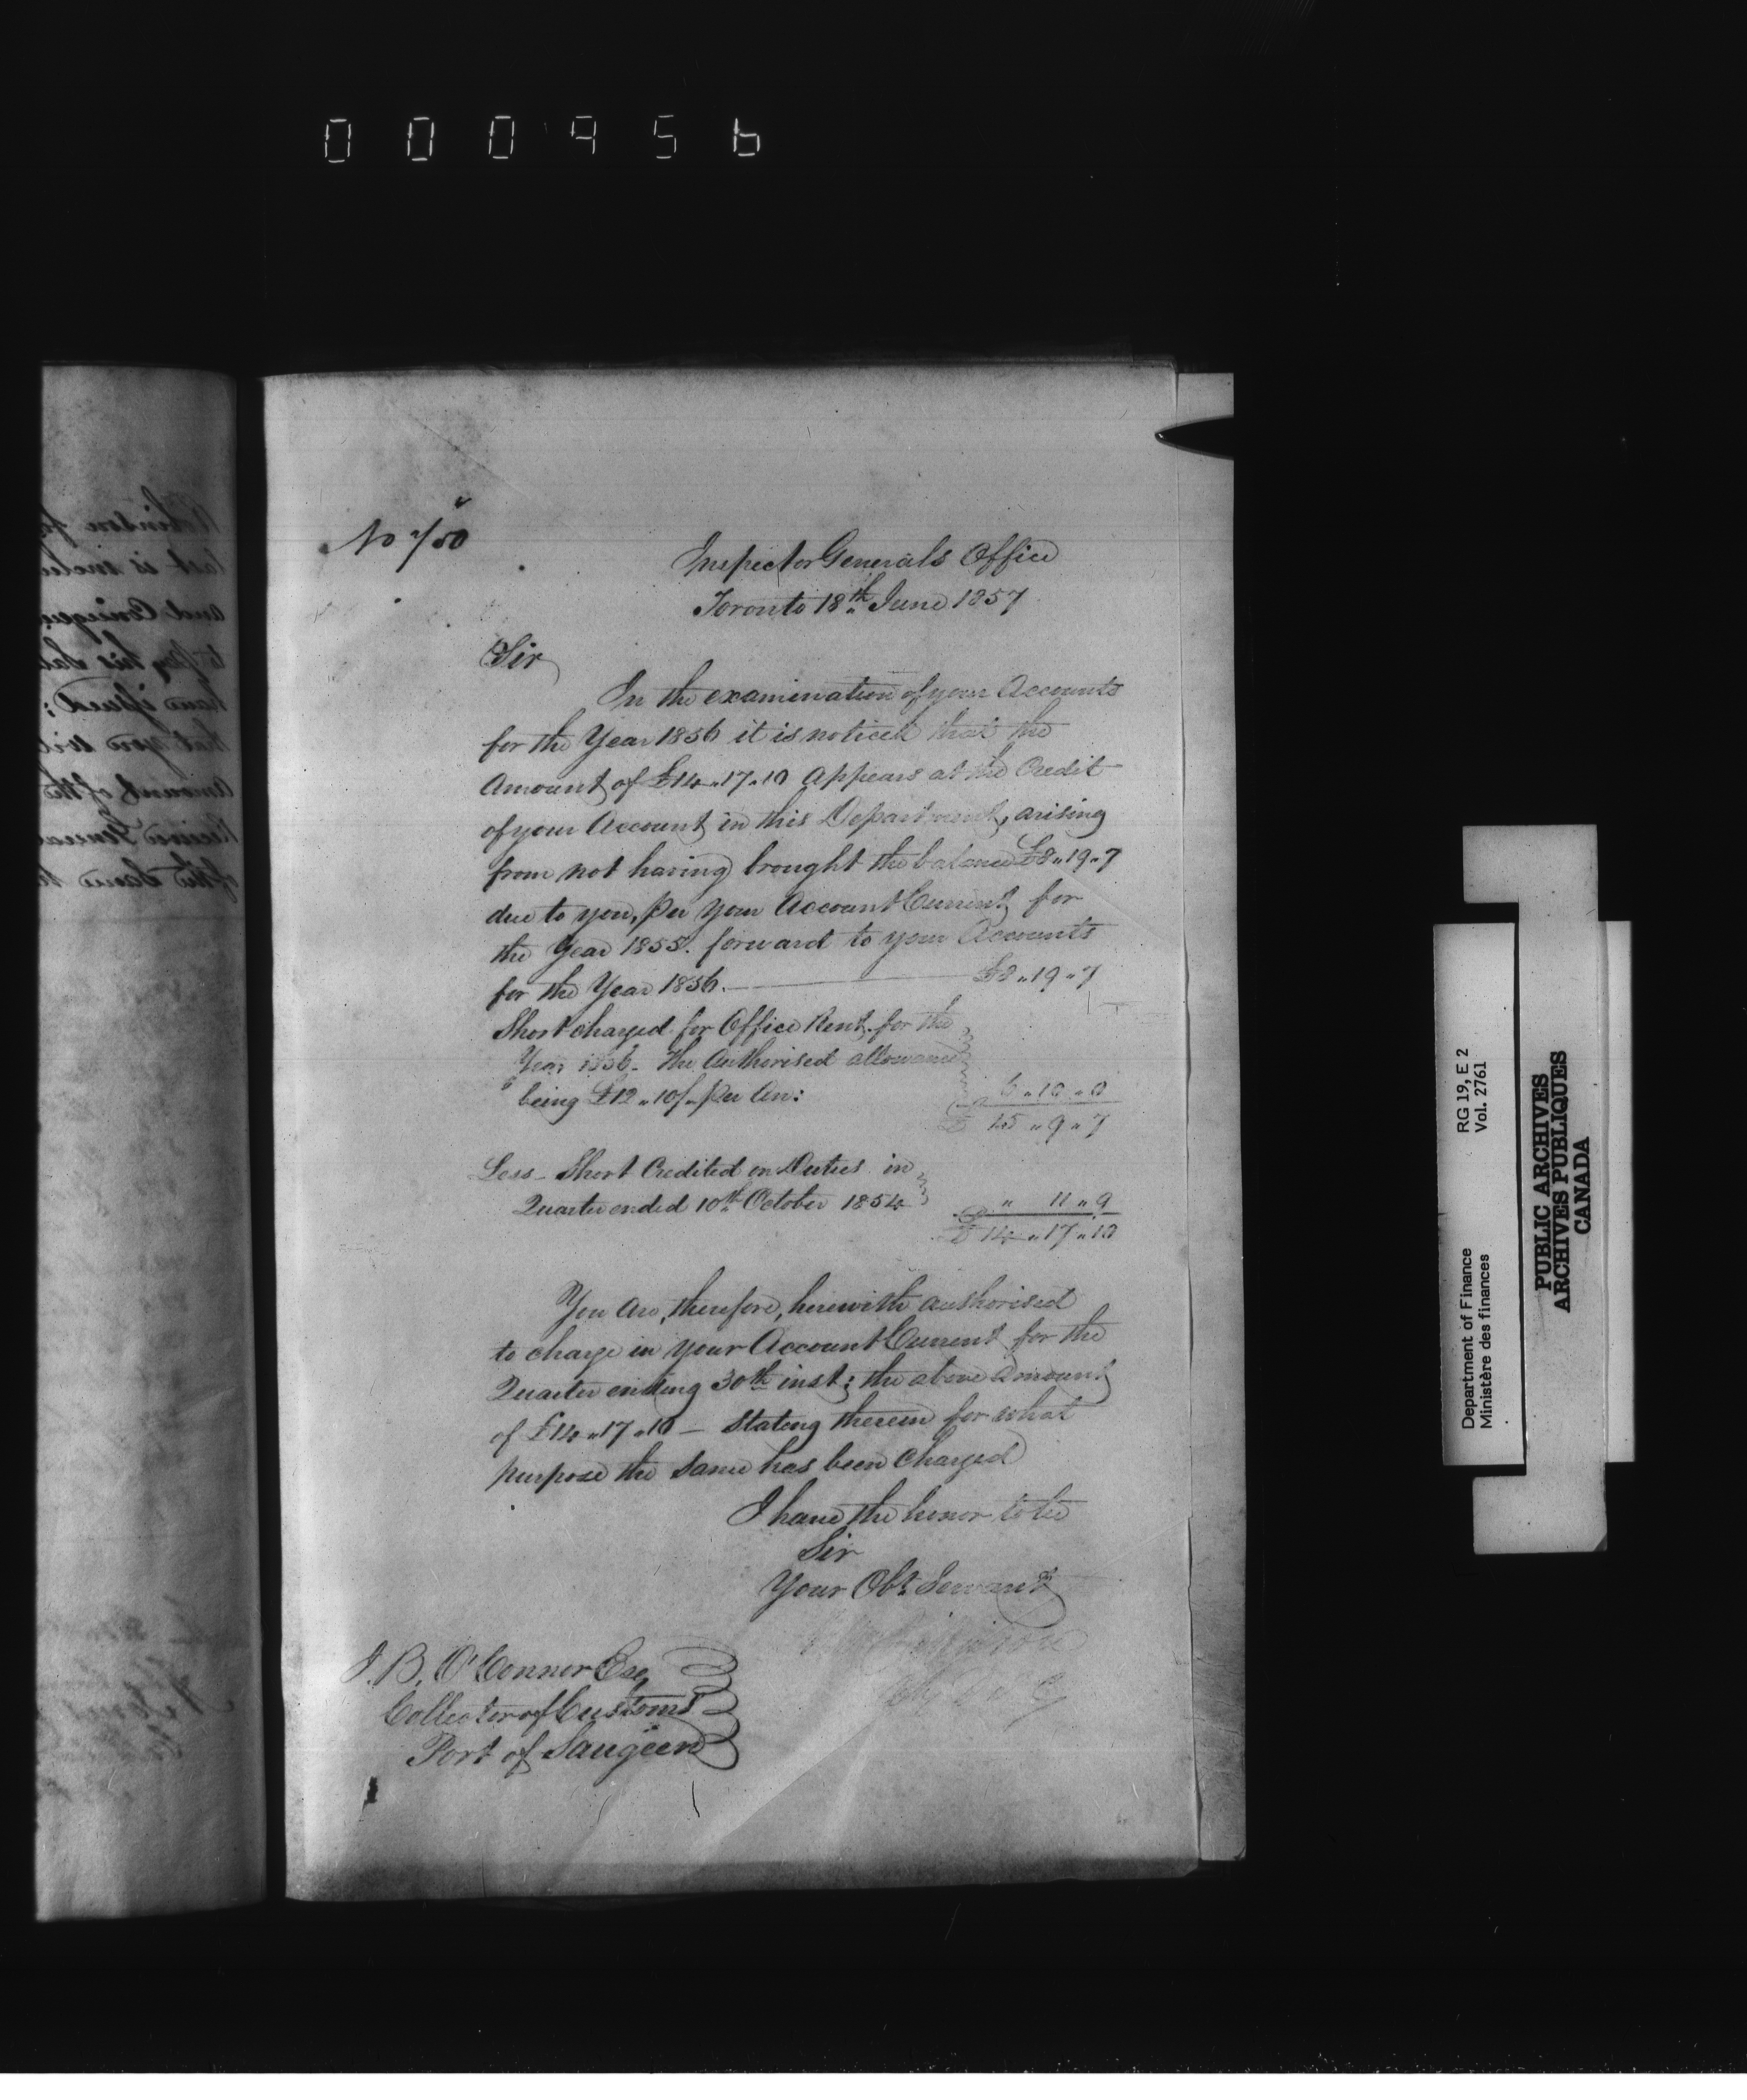 000956
No 750
Inspector Generals Office
Toronto 18th June 1857
Sir
In the examination of your Accounts
for the Year 1856 it is noticed that the
Amount of £14 „ 17 „ 10 appears at the Credit
of your Account in this Department, arising
from not having brought the balance £8 „ 19 „ 7
due to you, per your Account Current for
the Year 1855. forward to your Accounts
for the Year 1856. — £8 „ 19 „ 7
Short charged for Office Rent for the
Year 1856 - The Authorised allowance
being £12 „ 10/- per An: 6 „ 10 „ 0
£ 15 „ 9 „ 7
Less - Short Credited on Duties in
Quarter ended 10th October 1854 „ 11 „ 9
£ 14 „ 17 „ 10
You are, therefore, herewith authorised
to charge in your Account Current for the
Quarter ending 30th inst: the above Amount
of £14 „ 17 „ 10 — stating therein for what
purpose the same has been charged
I have the honor to be
Sir
Your Obt Servant
J. B. O'Connor Esq
Collector of Customs
Port of Saugeen
Department of Finance RG 19, E 2
Ministère des finances Vol. 2761
PUBLIC ARCHIVES
ARCHIVES PUBLIQUES
CANADA